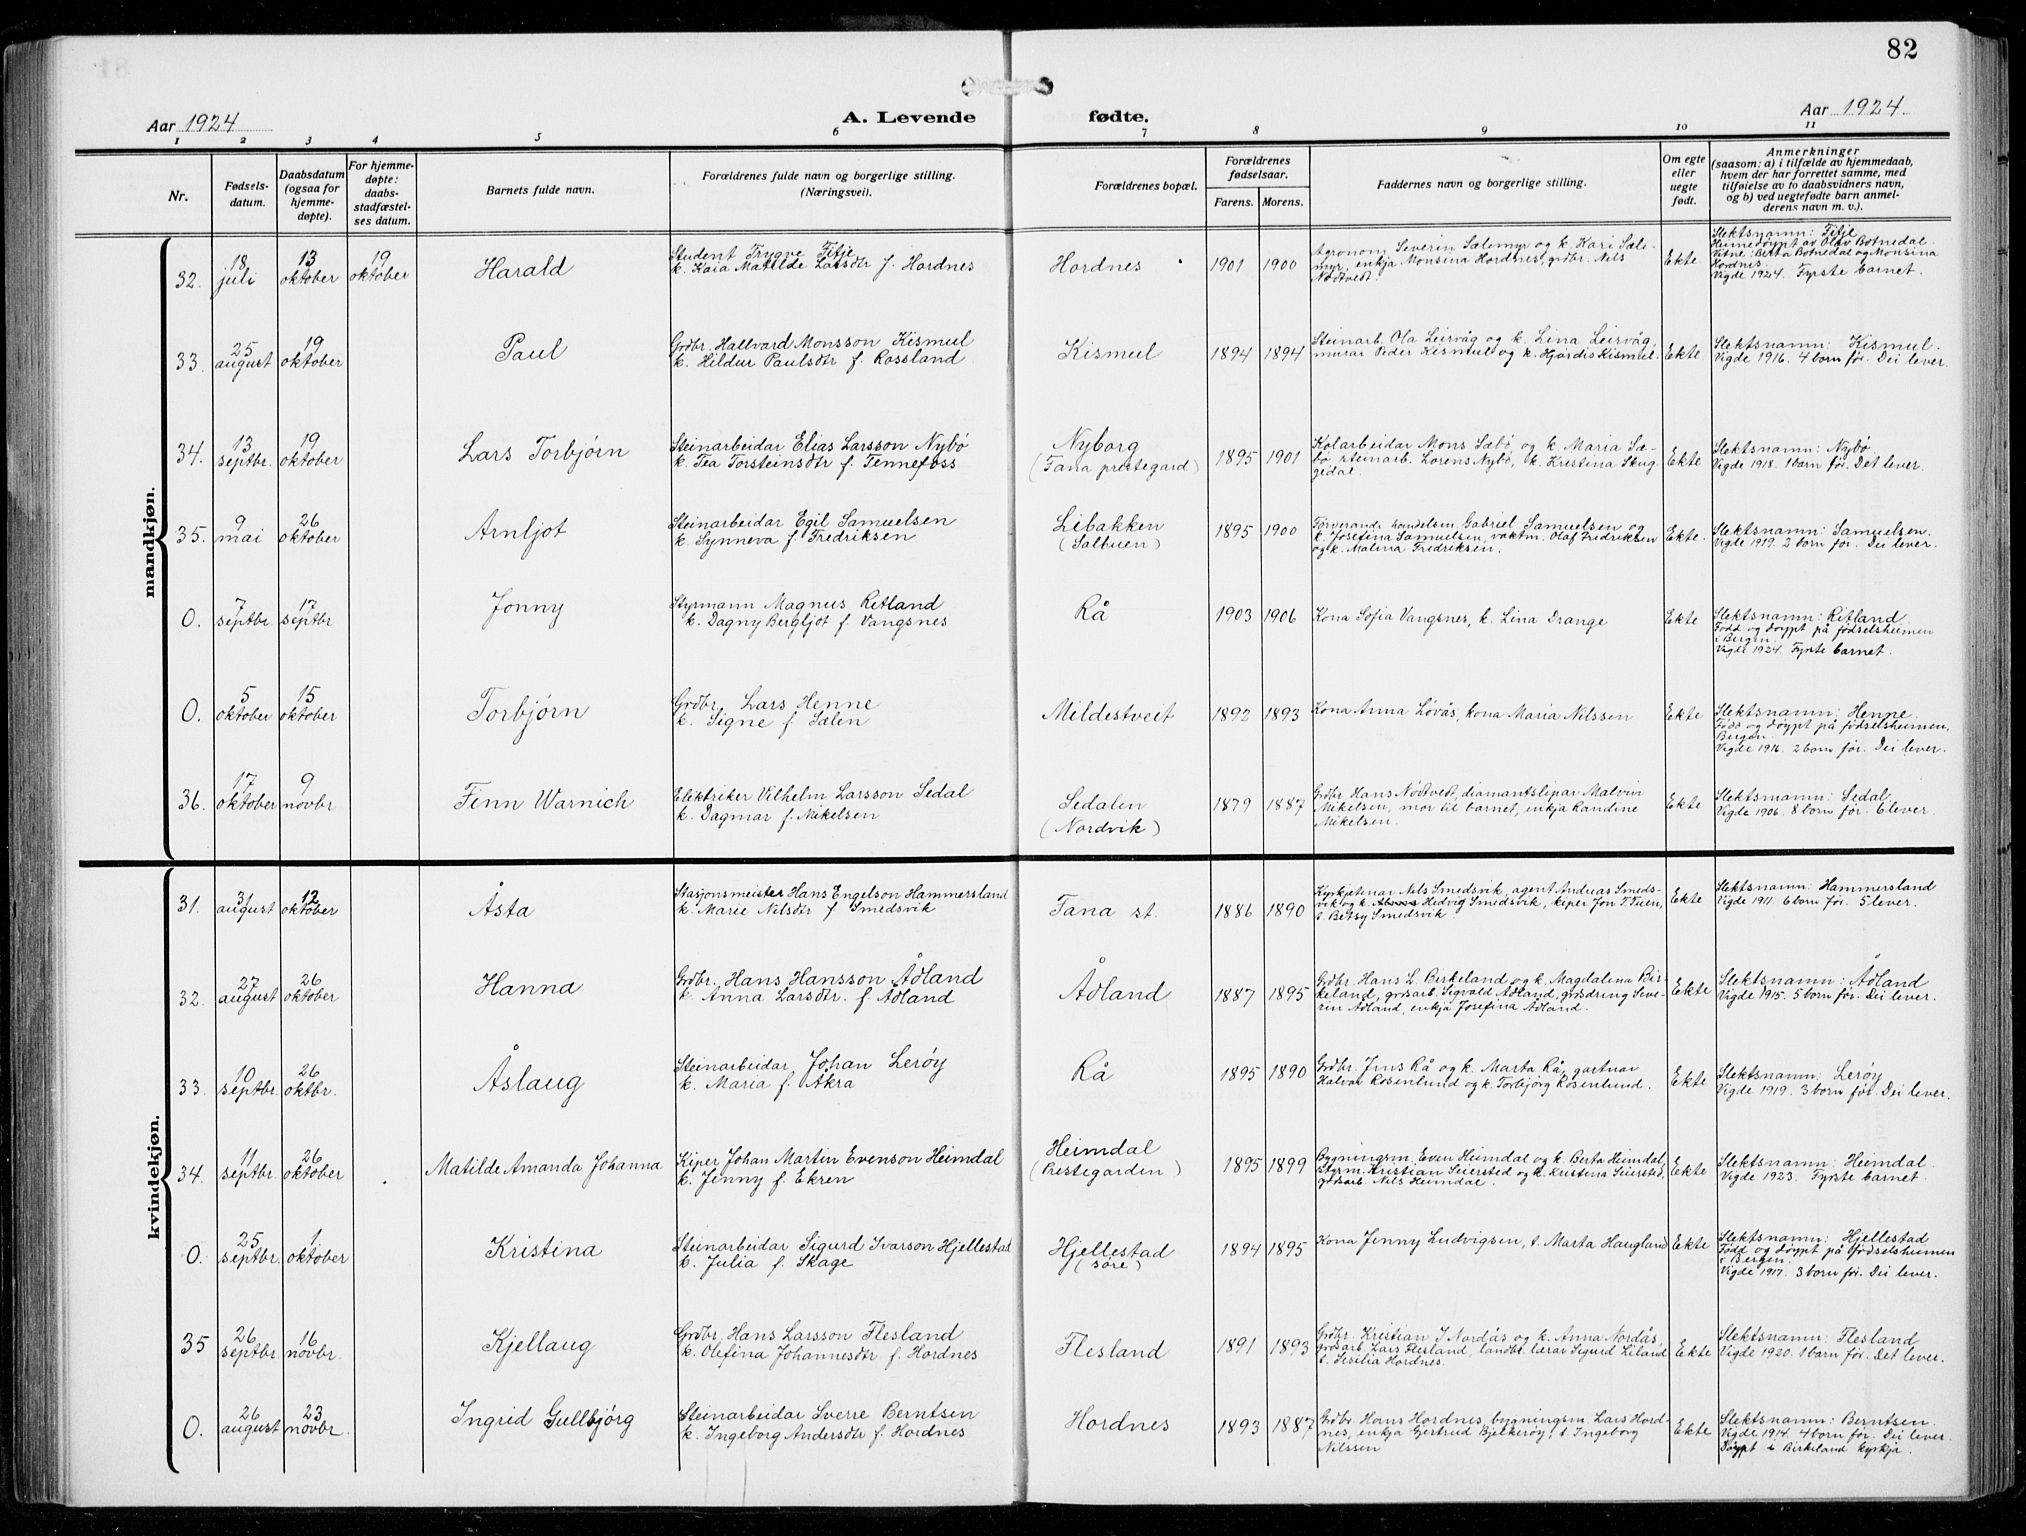 82
Aar 1924
A. Levende
fødte.
Aar 1924
1 2 3 4 5 6 7 8 9 10 11
Nr.
Fødsels-
datum.
Daabsdatum
(ogsaa for
hjemme-
døpte).
For hjemme-
døpte:
daabs-
stadfæstel-
ses datum.
Barnets fulde navn.
Forældrenes fulde navn og borgerlige stilling.
(Næringsvei).
Forældrenes bopæl.
Forældrenes
fødselsaar.
Farens. Morens.
Faddernes navn og borgerlige stilling.
Om egte
eller
uegte
født.
Anmerkninger
(saasom: a) i tilfælde av hjemmedaab,
hvem der har forrettet samme, med
tilføielse av to daabsvidners navn,
og b) ved uegtefødte barn anmel-
derens navn m. v.).
mandkjøn.
32. 18 juli
13 oktober
19 oktober
Harald
Student Trygve Titje
k. Kaia Matilde Larsdtr f. Hordnes
Hordnes
1901 1900
Agronom Severin Sælemyr og k. Kari Sæle-
myr, enkja Monsina Hordnes, grdbr. Nils
Nødtvedt.
Ekte
Slektsnamn: Titje
Heimedøypt av Olav Botnedal.
Vitne: Berta Botnedal og Monsina
Hordnes.
Vigde 1924. Fyrste barnet.
33. 25 august
19 oktober
Paul
Grdbr. Hallvard Monsson Kismul
k. Hildur Paulsdtr f. Rossland
Kismul
1894 1894
Steinarb. Ola Leirvåg og k. Lina Leirvåg,
murar Peder Kismul og k. Hjørdis Kismul.
Ekte
Slektsnamn: Kismul.
Vigde 1916. 4 born før. Dei lever.
34. 13 septbr.
19 oktober
Lars Torbjørn
Steinarbeidar Elias Larsson Nybø
k. Tea Torsteinsdtr f. Fennefoss
Nyborg
(Fana prestegard)
1895 1901
Kolarbeidar Mons Sæbø og k. Maria Sæ-
bø steinarb. Lorens Nybø, k. Kristina Skug-
gedal.
Ekte
Slektsnamn: Nybø.
Vigde 1918. 1 born før. Det lever.
35. 9 mai
26 oktober
Arnljot
Steinarbeidar Egil Samuelsen
k. Synneva f. Fredriksen
Libakken
(Salbuen)
1895 1900
Forverande handelsm. Gabriel Samuelsen og
k. Josefina Samuelsen, vaktm. Olaf Fredriksen
og k. Malina Fredriksen.
Ekte.
Slektsnamn: Samuelsen.
Vigde 1919. 2 born før. Dei lever.
0. 7 septbr.
17 septbr
Jonny
Styrmann Magnus Ritland
k. Dagny Bergljot f. Vangsnes
Rå
1903 1906
Kona Sofia Vangsnes, k. Lina Drange
Ekte
Slektsnamn: Ritland.
Fødd og døypt på fødselsheimen
i Bergen.
Vigde 1924. Fyrste barnet.
0. 5 oktober
15 oktober
Torbjørn
Grdbr. Lars Henne
k. Signe f. Sælen
Mildestveit
1892 1893
Kona Anna Løvås, kona Maria Nilssen
Ekte
Slektsnamn: Henne.
Fødd og døypt på fødselsheimen,
Bergen.
Vigde 1916. 2 born før. Dei lever.
36. 17 oktober
9 novbr
Finn Warnich
Elektriker Vilhelm Larsson Sedal
k. Dagmar f. Mikelsen
Sedalen
(Nordvik)
1879 1887
Grdbr Hans Nødtvedt, diamantslipar Malvin
Mikelsen, mor til barnet, enkja Randine
Mikelsen.
Ekte
Slektsnamn: Sedal.
Vigde 1906. 8 born før. 6 lever.
kvindekjøn.
31. 31 august
12 oktober
Åsta
Stasjonsmeister Hans Engelson Hammersland
k. Marie Nilsdtr f. Smedsvik
Fana st.
1886 1890
Kyrkjetenar Nils Smedsvik, agent Andreas Smeds-
vik og k. Hedvig Smedsvik, kiper Jon T. Tuen,
t. Betsy Smedsvik.
Ekte
Slektsnamn: Hammersland
Vigde 1911. 6 born før. 5 lever.
32. 27 august
26 oktober
Hanna
Grdbr. Hans Hansson Ådland
k. Anna Larsdtr. f. Ådland
Ådland
1887 1895
Grdbr. Hans L. Birkeland og k. Magdalena Bir-
keland, grdsarb. Sigvald Ådland, grdsdreng Seve-
rin Ådland, enkja Josefina Ådland.
Ekte
Slektsnamn: Ådland
Vigde 1915. 5 born før. Dei lever.
33. 10 septbr.
26 oktbr.
Åslaug
Steinarbeidar Johan Lerøy
k. Maria f. Åkra
Rå
1895 1890
Grdbr. Jens Rå og k. Marta Rå, gartnar
Halvar Rosenlund og k. Torbjørg Rosenlund.
Ekte
Slektsnamn: Lerøy
Vigde 1919. 3 born før. Dei lever.
34. 11 septbr.
26 oktober
Matilde Amanda Johanna
Kiper Johan Martin Evenson Heimdal
k. Jenny f. Ekren
Heimdal
(Prestegarden)
1895 1899
Bygningsm. Even Heimdal og k. Berta Heimdal,
styrm. Kristian Seiersted og k. Kristina Seiersted,
grdsarb. Nils Heimdal.
Ekte
Slektsnamn: Heimdal.
Vigde 1923. Fyrste barnet.
0. 25 septbr.
1 oktober
Kristina
Steinarbeidar Sigurd Ivarson Hjellestad
k. Julia f. Skage
Hjellestad
(søre)
1894 1895
Kona Jenny Ludvigsen, t. Marta Haugland
Ekte
Slektsnamn: Hjellestad
Fødd og døypt på fødselsheimen
i Bergen.
Vigde 1917. 3 born før. Dei lever.
35 26 septbr.
16 novbr.
Kjellaug
Grdbr. Hans Larsson Flesland
k. Olefina Johannesdtr f. Hordnes
Flesland
1891 1893
Grdbr. Kristian J Nordås og k. Anna Nordås,
grdsarb. Lars Flesland, landbr. lærar Sigurd Liland
t. Sesilia Hordnes.
Ekte
Slektsnamn: Flesland
Vigde 1920. 1 born før. Det lever.
0. 26 august
23 novbr.
Ingrid Gullbjørg
Steinarbeidar Sverre Berntsen
k. Ingeborg Andersdtr f. Hordnes
Hordnes
1893 1887
Grdbr. Hans Hordnes, bygningsm. Lars Hord-
nes, enkja Gertrud Bjelkerøy, t. Ingeborg
Nilssen
Ekte
Slektsnamn: Berntsen.
Vigde 1914. 4 born før. Dei lever.
Døypt i Birkeland kyrkja.